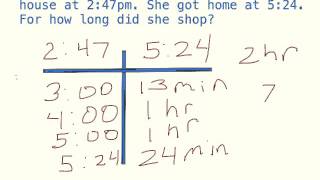 house at 2:47pm. She got home at 5:24.
For how long did she shop?
2:47 5:24 2hr
3:00 13 min 7
4:00 1 hr
5:00 1 hr
5:24 24 min